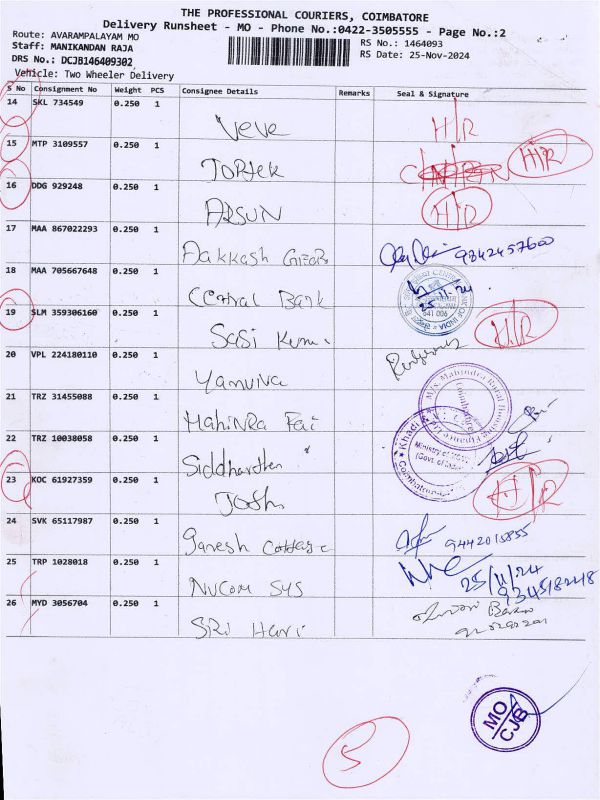 THE PROFESSIONAL COURIERS, COIMBATORE
Delivery Runsheet - MO - Phone No.:0422-3505555 - Page No.:2
Route: AVARAMPALAYAM MO
RS No.: 1464093
Staff: MANIKANDAN RAJA
RS Date: 25-Nov-2024
DRS No.: DCJB146409302
Vehicle: Two Wheeler Delivery
S No Consignment No Weight PCS Consignee Details Remarks Seal & Signature
14 SKL 734549 0.250 1
Veve H/R
15 MTP 3109557 0.250 1
TOPTek H/R
16 DDG 929248 0.250 1
ARSUN H/R
17 MAA 867022293 0.250 1
Aakkash Gears 9842457600
18 MAA 705667648 0.250 1
Central Bank 25.11.24
641 006
19 SLM 359306160 0.250 1
Sasi Kumr H/R
20 VPL 224180110 0.250 1
Yamuna
M/s. Mahindra Rural Housing Finance Ltd
Coimbatore
21 TRZ 31455088 0.250 1
Mahinra Fai
22 TRZ 10038058 0.250 1
Siddharthen
Khadi
Ministry of
(Govt. of India)
Coimbatore
23 KOC 61927359 0.250 1
Joshi H/R
24 SVK 65117987 0.250 1
Ganesh Cottage 9442015855
25 TRP 1028018 0.250 1
NUCOM SYS 25/11/24
9345182218
26 MYD 3056704 0.250 1
SRi Hari
MO/CJB
5